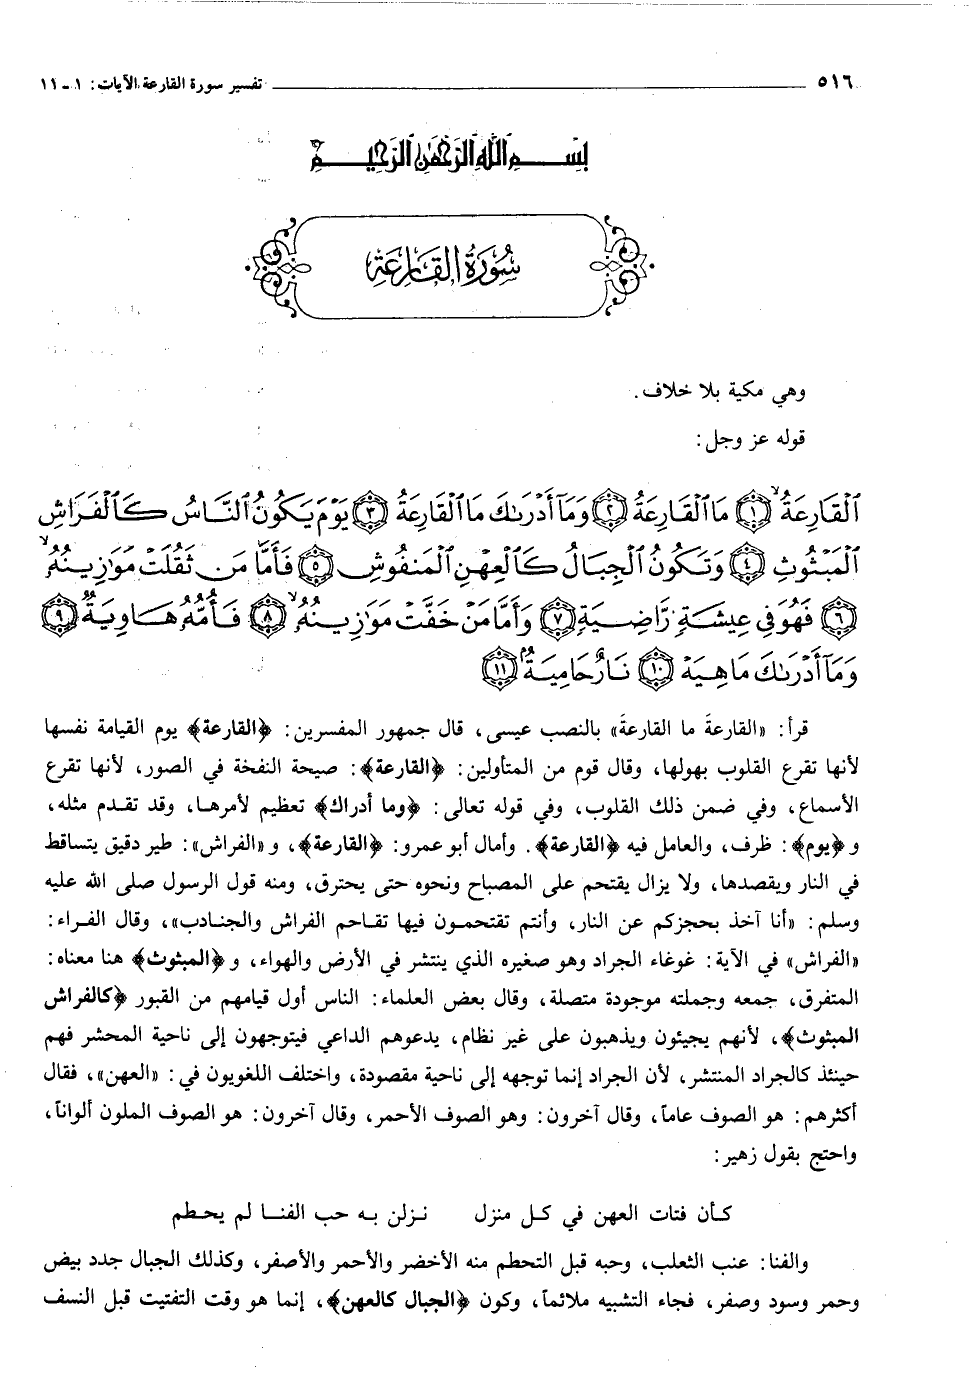 ٥١٦ تفسير سورة القارعة الآيات: ١ - ١١
بسم الله الرحمن الرحيم
سُورَةُ القَارِعَةِ
وهي مكية بلا خلاف.
قوله عز وجل:
ٱلْقَارِعَةُ ۝١ مَا ٱلْقَارِعَةُ ۝٢ وَمَآ أَدْرَىٰكَ مَا ٱلْقَارِعَةُ ۝٣ يَوْمَ يَكُونُ ٱلنَّاسُ كَٱلْفَرَاشِ
ٱلْمَبْثُوثِ ۝٤ وَتَكُونُ ٱلْجِبَالُ كَٱلْعِهْنِ ٱلْمَنفُوشِ ۝٥ فَأَمَّا مَن ثَقُلَتْ مَوَٰزِينُهُۥ
۝٦ فَهُوَ فِي عِيشَةٍ رَّاضِيَةٍ ۝٧ وَأَمَّا مَنْ خَفَّتْ مَوَٰزِينُهُۥ ۝٨ فَأُمُّهُۥ هَاوِيَةٌ ۝٩
وَمَآ أَدْرَىٰكَ مَا هِيَهْ ۝١٠ نَارٌ حَامِيَةٌۢ ۝١١
قرأ: «القارعةَ ما القارعةَ» بالنصب عيسى، قال جمهور المفسرين: ﴿القارعة﴾ يوم القيامة نفسها
لأنها تقرع القلوب بهولها، وقال قوم من المتأولين: ﴿القارعة﴾: صيحة النفخة في الصور، لأنها تقرع
الأسماع، وفي ضمن ذلك القلوب، وفي قوله تعالى: ﴿وما أدراك﴾ تعظيم لأمرها، وقد تقدم مثله،
و﴿يوم﴾: ظرف، والعامل فيه ﴿القارعة﴾. وأمال أبو عمرو: ﴿القارعة﴾، و«الفراش»: طير دقيق يتساقط
في النار ويقصدها، ولا يزال يقتحم على المصباح ونحوه حتى يحترق، ومنه قول الرسول صلى الله عليه
وسلم: «أنا آخذ بحجزكم عن النار، وأنتم تقتحمون فيها تقاحم الفراش والجنادب»، وقال الفراء:
«الفراش» في الآية: غوغاء الجراد وهو صغيره الذي ينتشر في الأرض والهواء، و﴿المبثوث﴾ هنا معناه:
المتفرق، جمعه وجملته موجودة متصلة، وقال بعض العلماء: الناس أول قيامهم من القبور ﴿كالفراش
المبثوث﴾، لأنهم يجيئون ويذهبون على غير نظام، يدعوهم الداعي فيتوجهون إلى ناحية المحشر فهم
حينئذ كالجراد المنتشر، لأن الجراد إنما توجهه إلى ناحية مقصودة، واختلف اللغويون في: «العهن»، فقال
أكثرهم: هو الصوف عاماً، وقال آخرون: وهو الصوف الأحمر، وقال آخرون: هو الصوف الملون ألواناً،
واحتج بقول زهير:
كأن فتات العهن في كل منزل نزلن به حب الفنا لم يحطم
والفنا: عنب الثعلب، وحبه قبل التحطم منه الأخضر والأحمر والأصفر، وكذلك الجبال جدد بيض
وحمر وسود وصفر، فجاء التشبيه ملائماً، وكون ﴿الجبال كالعهن﴾، إنما هو وقت التفتيت قبل النسف